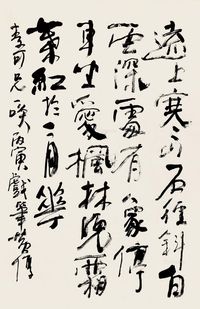 遠上寒山石徑斜白
雲深處有人家停
車坐愛楓林晚霜
葉紅於二月華
李可兄咲丙寅戲筆